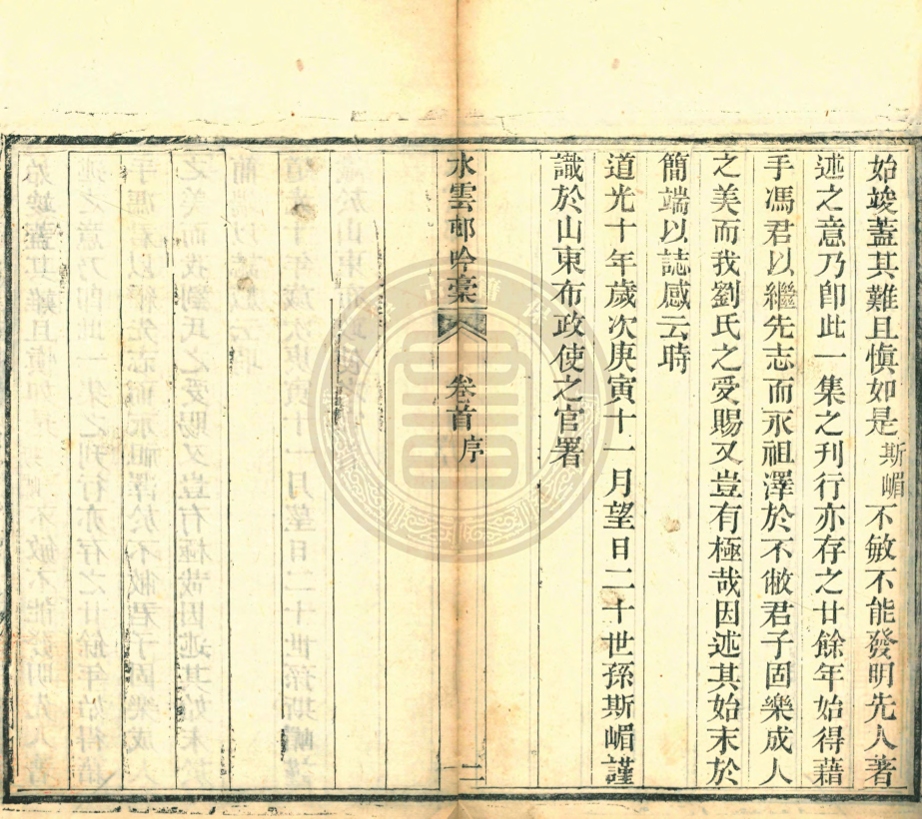 始竣蓋其難且愼如是斯嵋不敏不能發明先人著
述之意乃卽此一集之刊行亦存之廿餘年始得藉
手馮君以繼先志而永祖澤於不敝君子固樂成人
之美而我劉氏之受賜又豈有極哉因述其始末於
簡端以誌感云時
道光十年歲次庚寅十一月望日二十世孫斯嵋謹
識於山東布政使之官署
水雲邨吟稾 卷首序 二